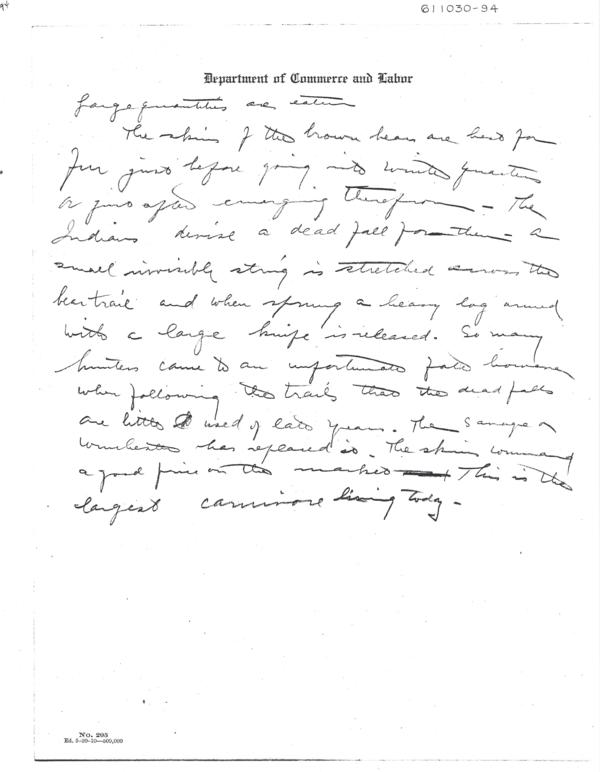 611030-94
Department of Commerce and Labor
Large quantities are eaten
The skins of the brown bear are best for
fur just before going into winter quarters
or just after emerging therefrom - The
Indians devise a dead fall for them - a
small invisible string is stretched across the
bear trail and when sprung a heavy log armed
with a large knife is released. So many
hunters came to an unfortunate fate however
when following the trails that the dead falls
are little used of late years. The Savage or
Winchester has replaced it. The skins command
a good price on the market This is the
largest carnivore living today -
No. 295
Ed. 5-20-10-500,000